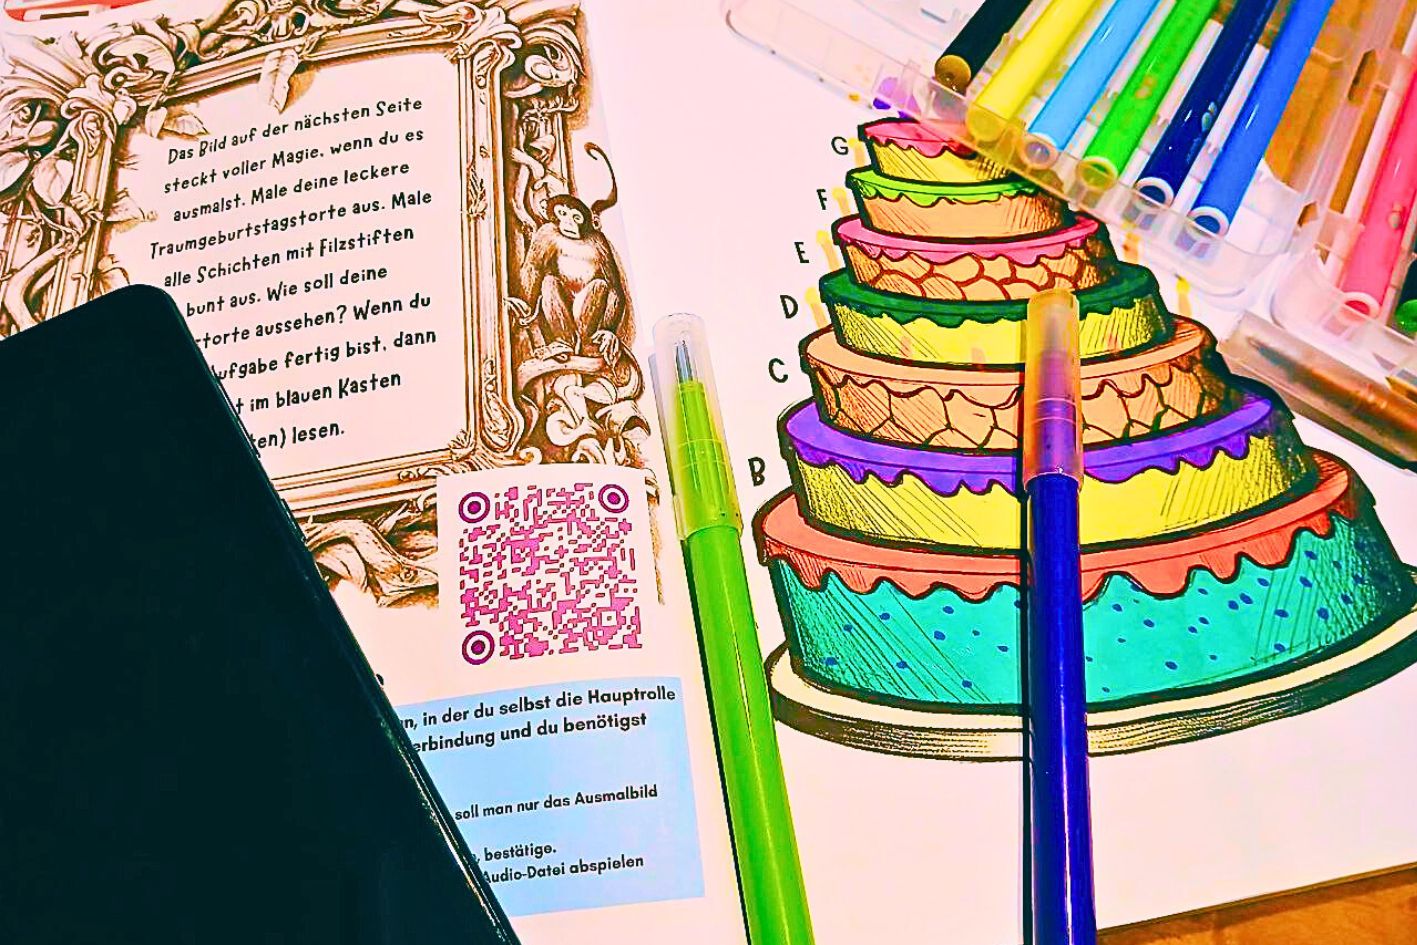 Das Bild auf der nächsten Seite
steckt voller Magie, wenn du es
ausmalst. Male deine leckere
Traumgeburtstagstorte aus. Male
alle Schichten mit Filzstiften
bunt aus. Wie soll deine
torte aussehen? Wenn du
ufgabe fertig bist, dann
t im blauen Kasten
ten) lesen.
n, in der du selbst die Hauptrolle
erbindung und du benötigst
soll man nur das Ausmalbild
, bestätige.
Audio-Datei abspielen
G
F
E
D
C
B